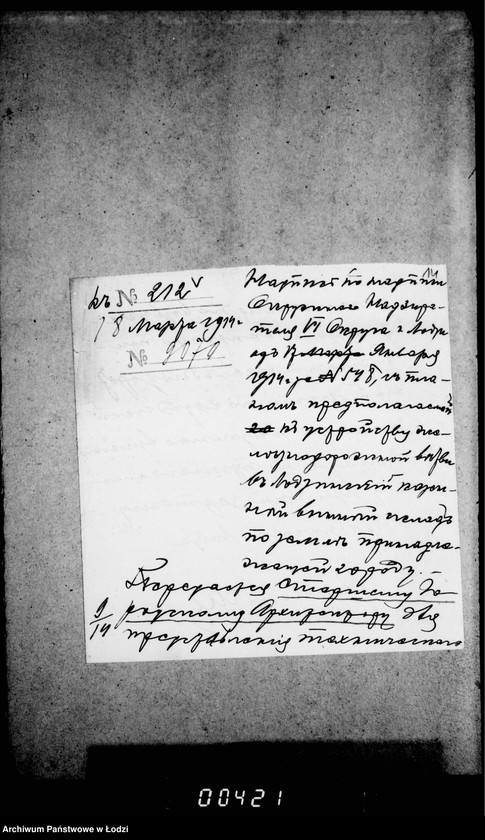 14
къ № 212
18 Марта 1914 г.
№ 2070
по
Окружного Надзира-
теля VI Округа г. Лодзи
отъ Января
1914 г. за № 548, съ пла-
номъ предполагаемой
къ устройству же-
лезнодорожной ветви
въ Лодзинскій казен-
ный винный складъ
по земле принадле-
жащей городу.
Передается Старшему Го-
родскому Архитектору для
9/14
представленія техническаго
00421
Archiwum Państwowe w Łodzi